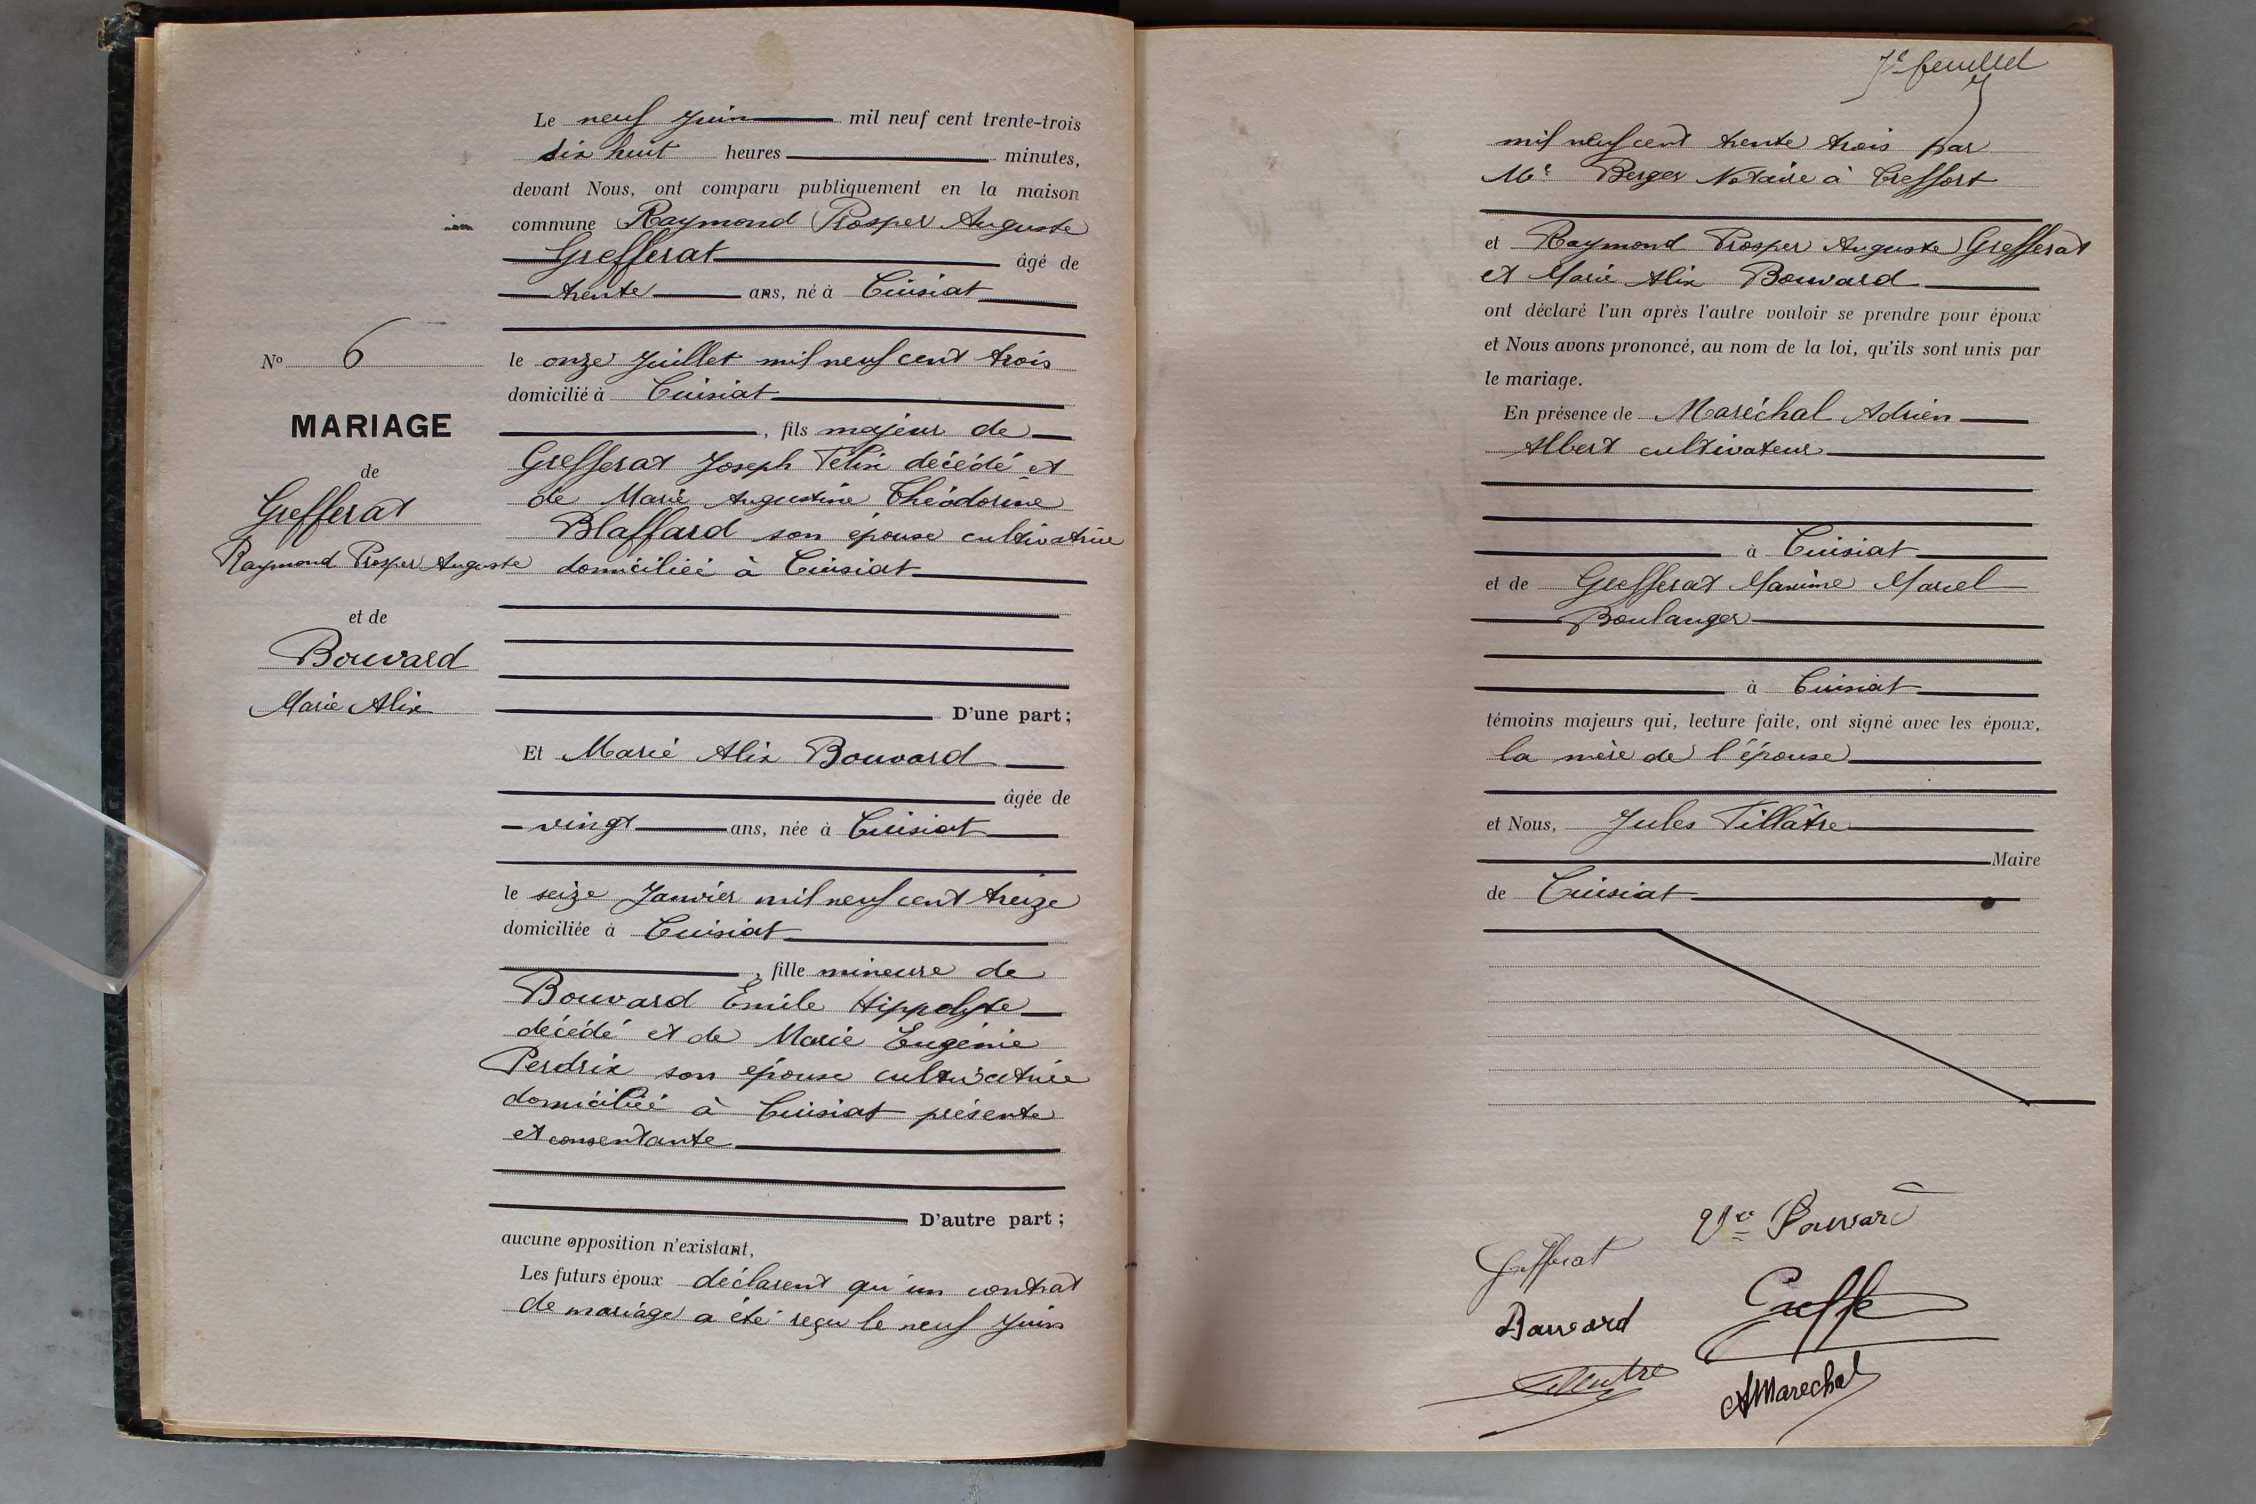 Le neuf Juin mil neuf cent trente-trois
dix huit heures minutes,
devant Nous, ont comparu publiquement en la maison
commune Raymond Prosper Auguste
Grefferat âgé de
trente ans, né à Cuisiat
le onze Juillet mil neuf cent trois
domicilié à Cuisiat
, fils majeur de
Grefferat Joseph Félix décédé et
de Marie Augustine Théodorine
Blaffard son épouse cultivatrice
domiciliée à Cuisiat
D'une part ;
Et Marie Alix Bouvard
âgée de
vingt ans, née à Cuisiat
le seize Janvier mil neuf cent treize
domiciliée à Cuisiat
, fille mineure de
Bouvard Emile Hippolyte
décédé et de Marie Eugénie
Perdrix son épouse cultivatrice
domiciliée à Cuisiat présente
et consentante
D'autre part ;
aucune opposition n'existant,
Les futurs époux déclarent qu'un contrat
de mariage a été reçu le neuf Juin
N° 6
MARIAGE
de
Grefferat
Raymond Prosper Auguste
et de
Bouvard
Marie Alix
7e feuillet
mil neuf cent trente trois par
Me Berger Notaire à Treffort
et Raymond Prosper Auguste Grefferat
et Marie Alix Bouvard
ont déclaré l'un après l'autre vouloir se prendre pour époux
et Nous avons prononcé, au nom de la loi, qu'ils sont unis par
le mariage.
En présence de Maréchal Adrien
Albert cultivateur
à Cuisiat
et de Grefferat Maxime Marcel
Boulanger
à Cuisiat
témoins majeurs qui, lecture faite, ont signé avec les époux,
la mère de l'épouse
et Nous, Jules Tillâtre
Maire
de Cuisiat
Vve Bouvard
Grefferat
Greffe
Bouvard
AMarechal